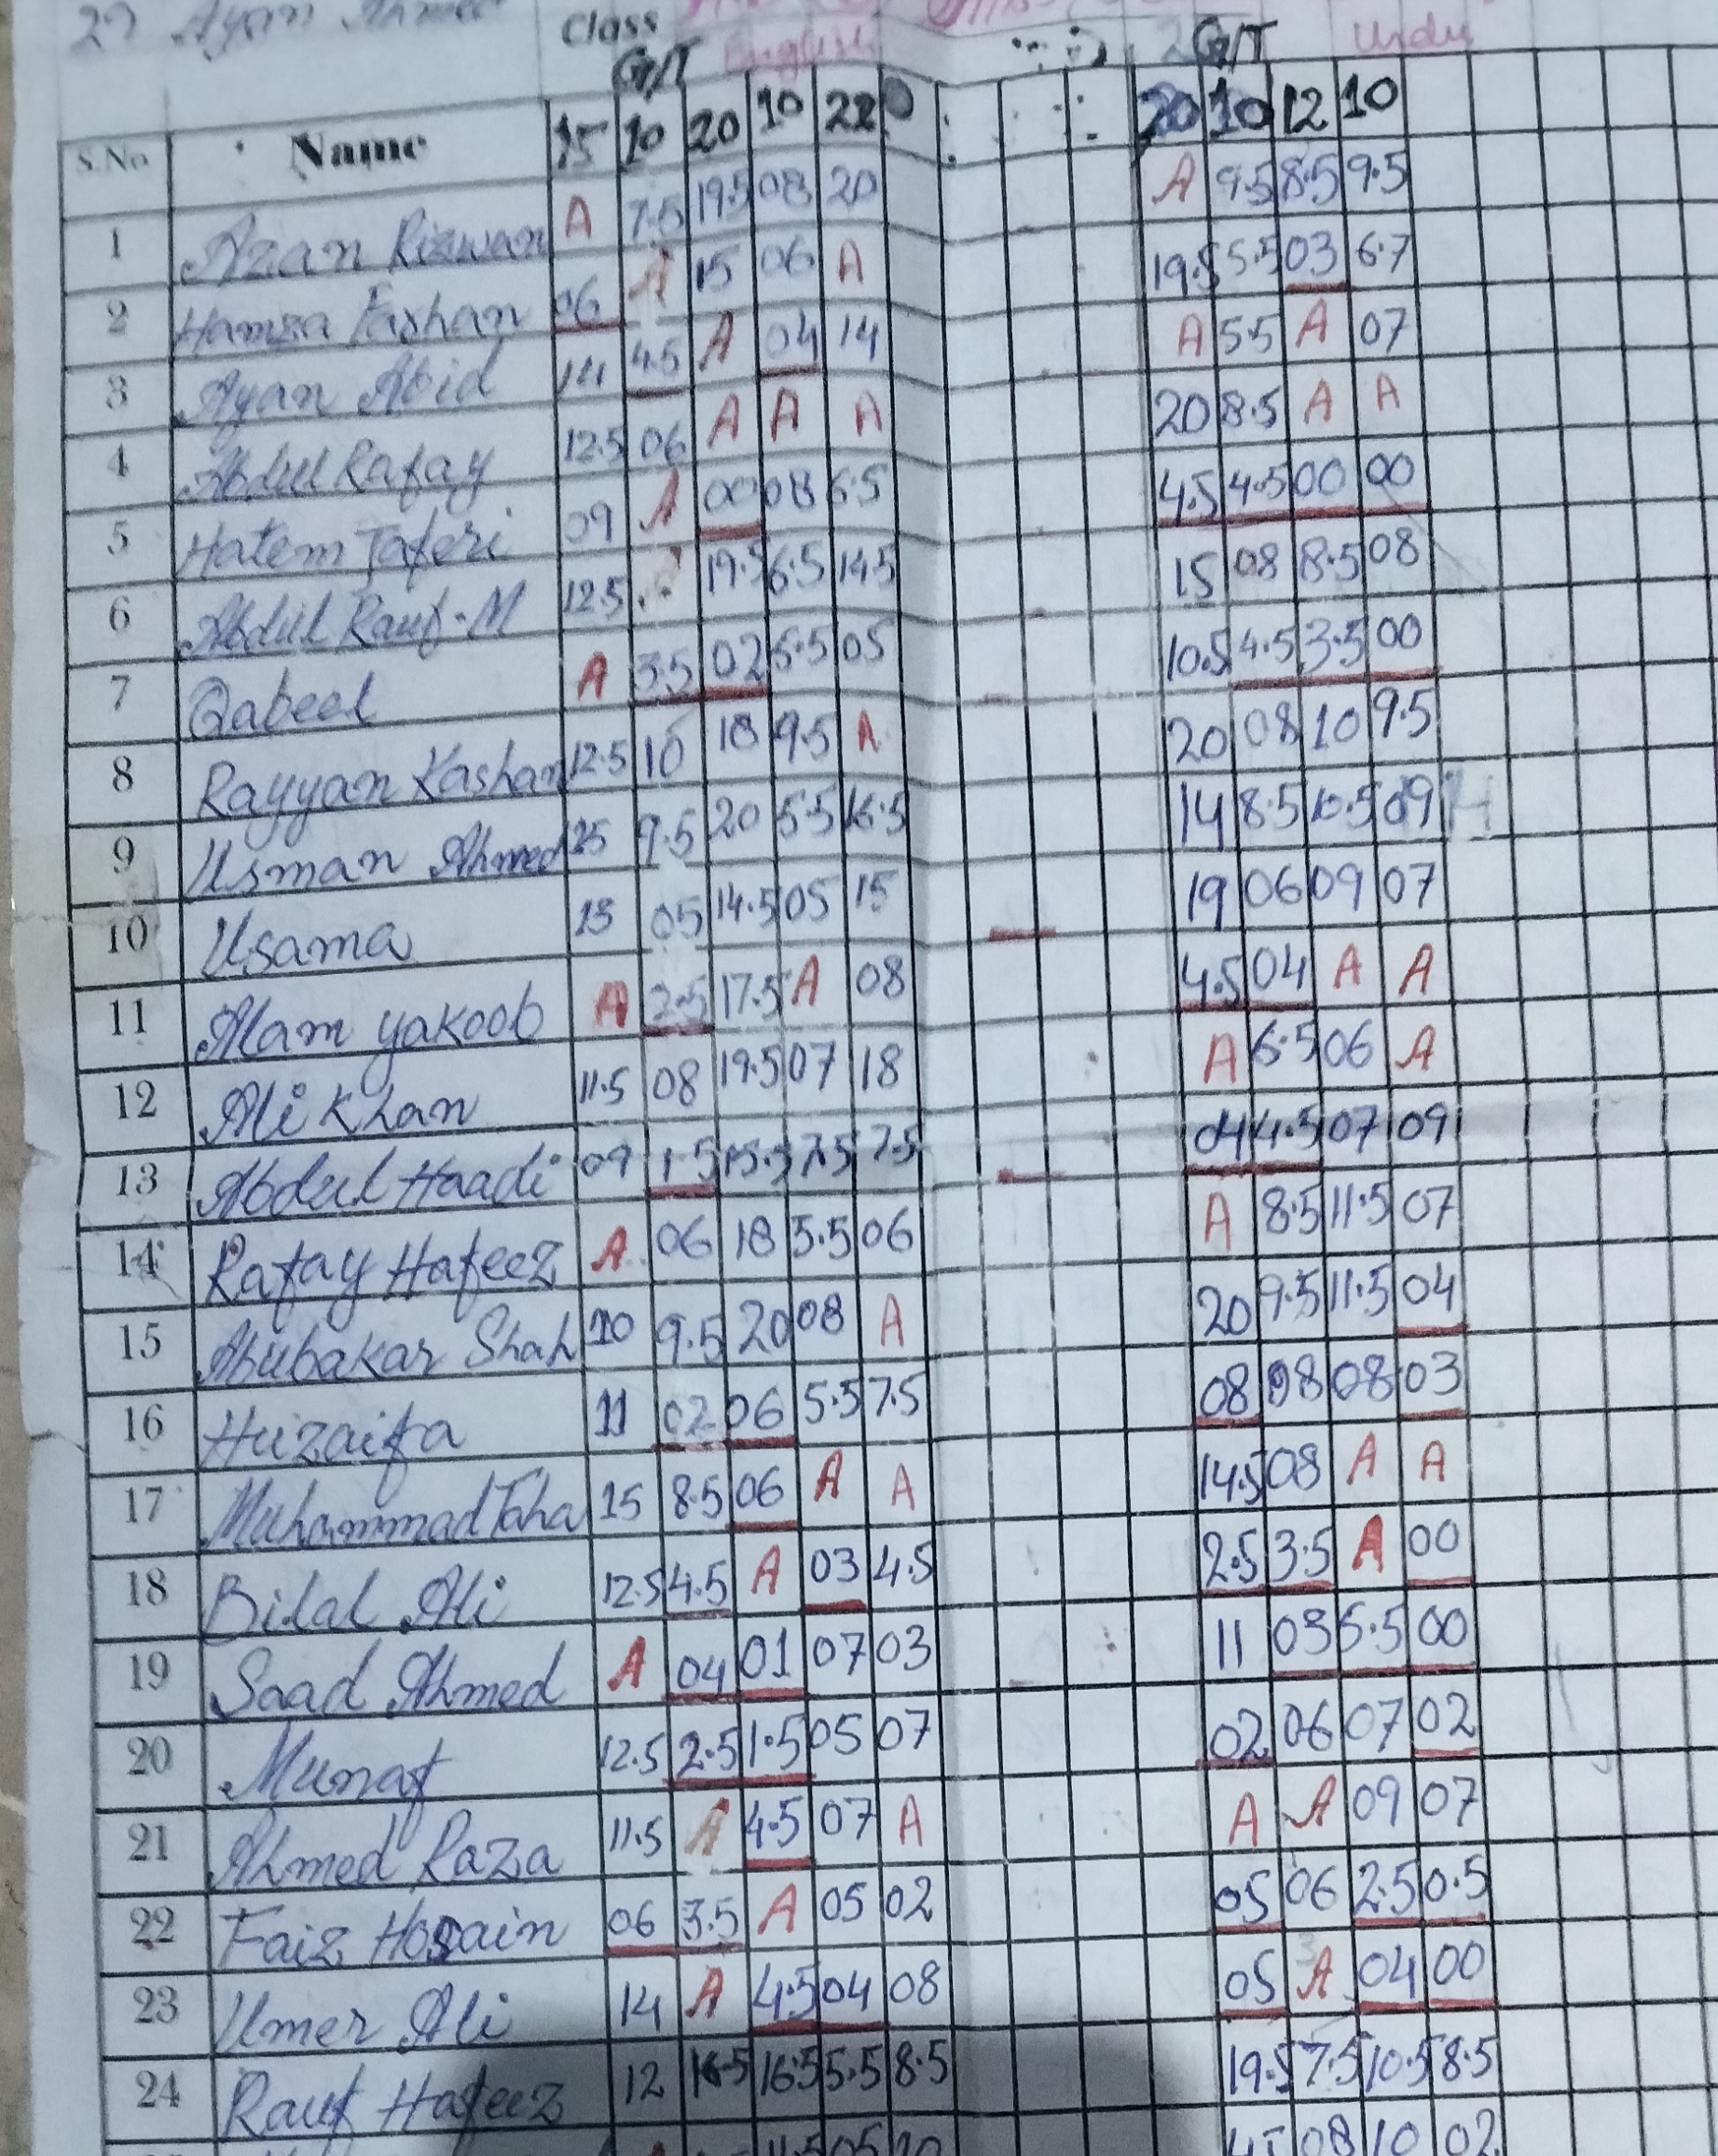 27 Ayan Ahmed
Class G/T English G/T Urdu
S.No Name 15 10 20 10 22 20 10 12 10
1 Azan Rizwan A 7.5 19.5 08 20 A 9.5 8.5 9.5
2 Hamza Farhan 06 A 15 06 A 19.5 5.5 03 6.7
3 Ayan Abid 14 4.5 A 04 14 A 5.5 A 07
4 Abdul Rafay 12.5 06 A A A 20 8.5 A A
5 Hatem Taferi 09 A 00 08 6.5 4.5 4.5 00 00
6 Abdul Rauf.M 12.5 19.5 6.5 14.5 15 08 8.5 08
7 Qabeel A 3.5 02 5.5 05 10.5 4.5 3.5 00
8 Rayyan Kashan 12.5 10 18 9.5 A 20 08 10 9.5
9 Usman Ahmed 9.5 20 5.5 16.5 14 8.5 10.5 09
10 Usama 13 05 14.5 05 15 19 06 09 07
11 Alam yakoob A 2.5 17.5 A 08 4.5 04 A A
12 Ali Khan 11.5 08 19.5 07 18 A 6.5 06 A
13 Abdul Haadi 09 1.5 15.5 7.5 7.5 04 4.5 07 09
14 Rafay Hafeez A 06 18 5.5 06 A 8.5 11.5 07
15 Abubakar Shah 10 9.5 20 08 A 20 9.5 11.5 04
16 Huzaifa 11 02 06 5.5 7.5 08 08 08 03
17 Muhammad Taha 15 8.5 06 A A 14.5 08 A A
18 Bilal Ali 12.5 4.5 A 03 4.5 2.5 3.5 A 00
19 Saad Ahmed A 04 01 07 03 11 03 5.5 00
20 Munaf 12.5 2.5 1.5 05 07 02 06 07 02
21 Ahmed Raza 11.5 A 4.5 07 A A A 09 07
22 Faiz Hossain 06 3.5 A 05 02 05 06 2.5 0.5
23 Umer Ali 14 A 4.5 04 08 05 A 04 00
24 Rauf Hafeez 12 16.5 5.5 8.5 19.5 7.5 10.5 8.5
08 10 02